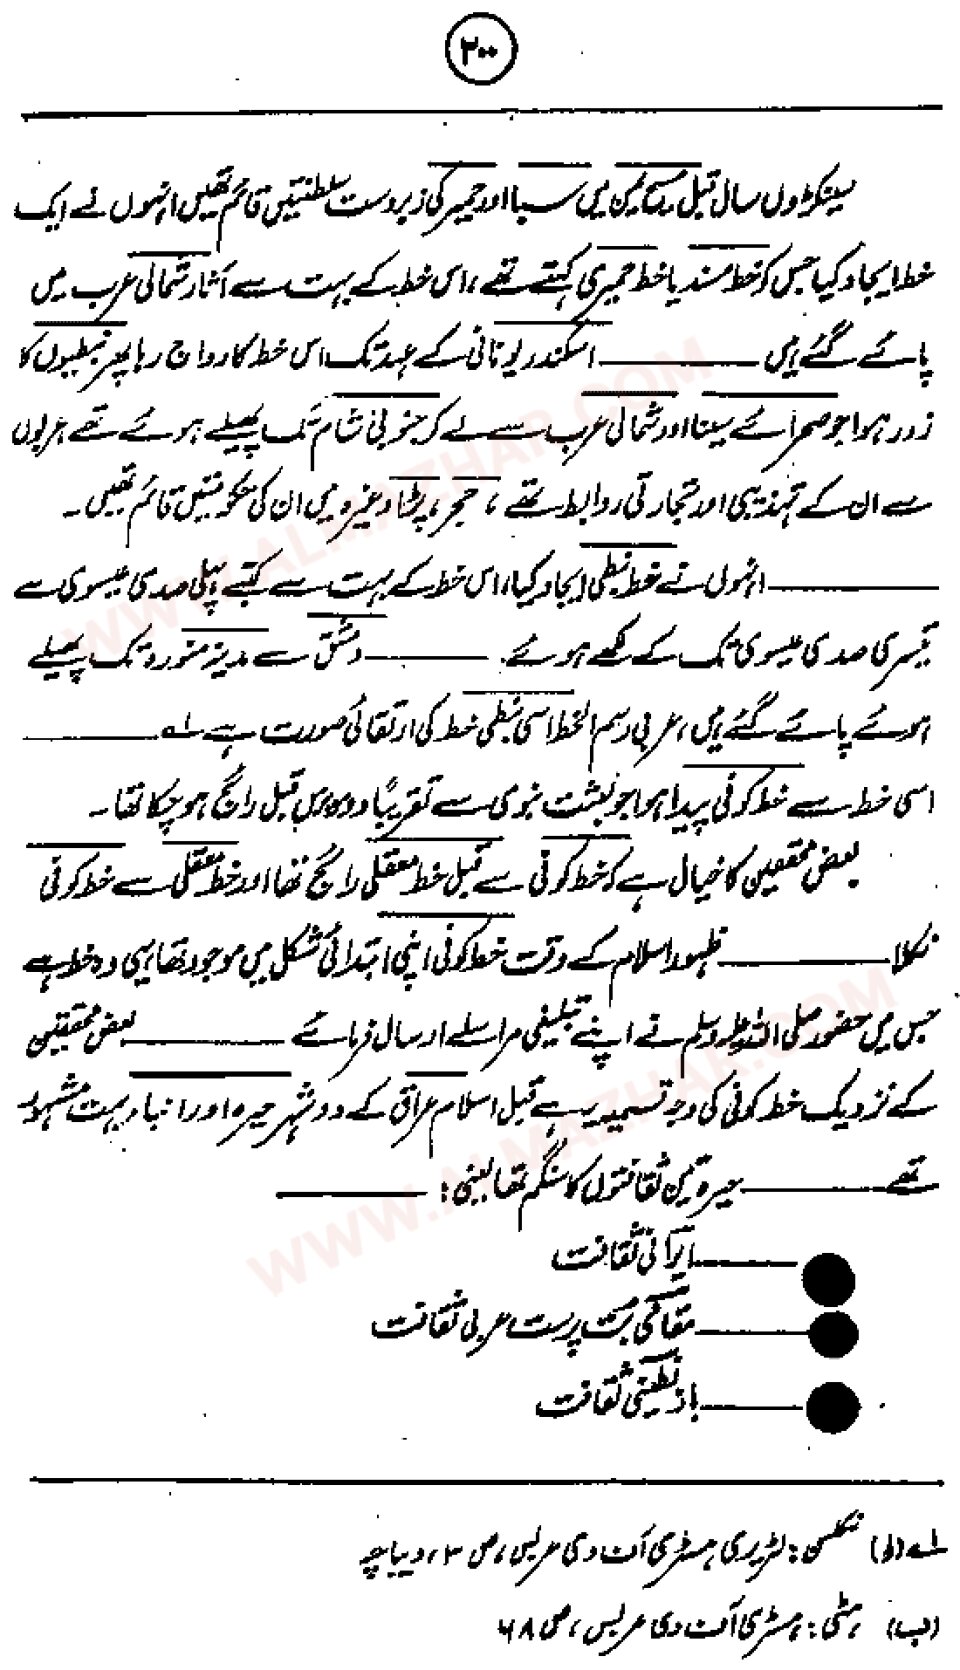 ۲۰۰
سینکڑوں سال قبل مسیح یمن میں سبا اور حمیر کی زبردست سلطنتیں قائم تھیں انہوں نے ایک
خط ایجاد کیا جس کو خط مسند یا خط حمیری کہتے تھے، اس خط کے بہت سے آثار شمالی عرب میں
پائے گئے ہیں ——— اسکندر یونانی کے عہد تک اس خط کا رواج رہا پھر نبطیوں کا
زور ہوا جو صحرائے سینا اور شمالی عرب سے لے کر جنوبی شام تک پھیلے ہوئے تھے عربوں
سے ان کے تہذیبی اور تجارتی روابط تھے، حجر، پٹرا وغیرہ میں ان کی حکومتیں قائم تھیں۔
——— انہوں نے خط نبطی ایجاد کیا، اس خط کے بہت سے کتبے پہلی صدی عیسوی سے
تیسری صدی عیسوی تک کے لکھے ہوئے ——— دمشق سے مدینہ منورہ تک پھیلے
ہوئے پائے گئے ہیں، عربی رسم الخط اسی نبطی خط کی ارتقائی صورت ہے لہ ———
اسی خط سے خط کوفی پیدا ہوا جو بعثت نبوی سے تقریباً دو سو برس قبل رائج ہو چکا تھا۔
بعض محققین کا خیال ہے کہ خط کوفی سے قبل خط معقلی رائج تھا اور خط معقلی سے خط کوفی
نکلا ——— ظہور اسلام کے وقت خط کوفی اپنی ابتدائی شکل میں موجود تھا یہی وہ خط ہے
جس میں حضور صلی اللہ علیہ وسلم نے اپنے تبلیغی مراسلے ارسال فرمائے ——— بعض محققین
کے نزدیک خط کوفی کی وجہ تسمیہ یہ ہے قبل اسلام عراق کے دو شہر حیرہ اور انبار بہت مشہور
تھے ——— حیرہ تین ثقافتوں کا سنگم تھا یعنی: ———
● ——— ایرانی ثقافت
● ——— مقامی بت پرست عربی ثقافت
● ——— بازنطینی ثقافت
لہ (ا) نکلسن: لٹریری ہسٹری آف دی عربس، ص ۳، دیباچہ
(ب) ہٹی: ہسٹری آف دی عربس، ص ۶۸
WWW.ALMAZHAR.COM
WWW.ALMAZHAR.COM